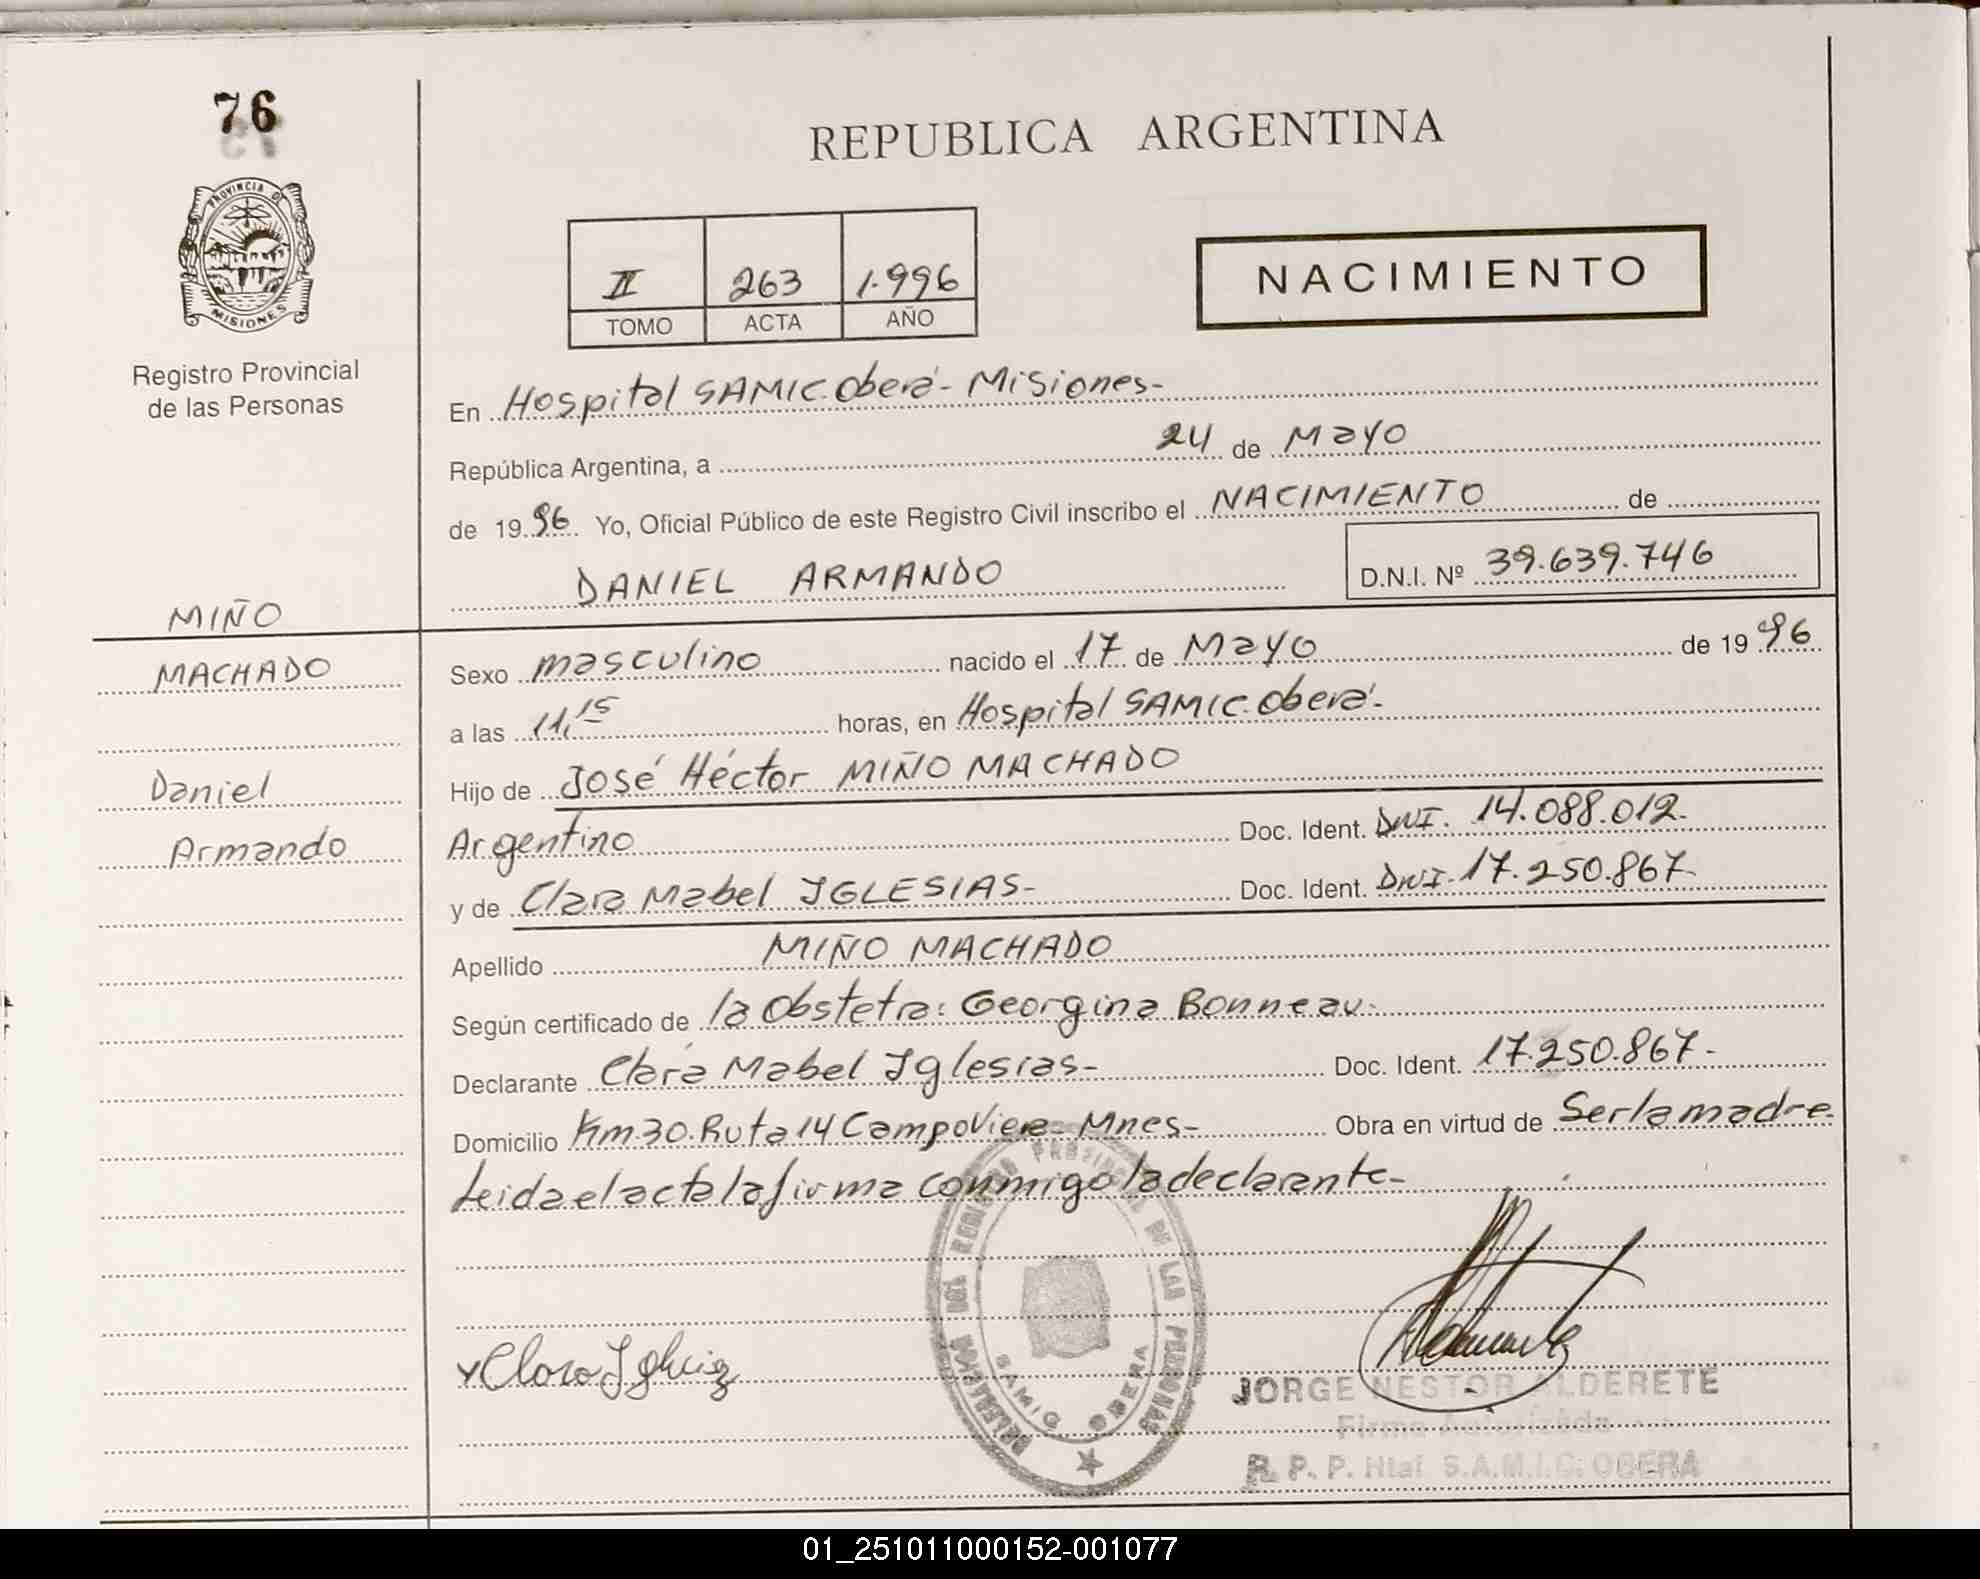 76
PROVINCIA DE
MISIONES
Registro Provincial
de las Personas
REPUBLICA ARGENTINA
II 263 1.996
TOMO ACTA AÑO
NACIMIENTO
En Hospital SAMIC Oberá - Misiones -
República Argentina, a 24 de Mayo
de 19 96 Yo, Oficial Público de este Registro Civil inscribo el NACIMIENTO de
DANIEL ARMANDO D.N.I. Nº 39.639.746
MIÑO
MACHADO
Daniel
Armando
Sexo masculino nacido el 17 de Mayo de 19 96
a las 11,15 horas, en Hospital SAMIC Oberá.
Hijo de José Héctor MIÑO MACHADO
Argentino Doc. Ident. DNI. 14.088.012.
y de Clara Mabel IGLESIAS - Doc. Ident. DNI. 17.250.867.
Apellido MIÑO MACHADO
Según certificado de la Obstetra: Georgina Bonneau.
Declarante Clara Mabel Iglesias - Doc. Ident. 17.250.867 -
Domicilio Km 30 Ruta 14 Campo Viera - Mnes - Obra en virtud de Ser la madre.
Leida el acta la firma conmigo la declarante -
DELEGACION DEL REGISTRO PROVINCIAL DE LAS PERSONAS
SAMIC OBERA
JORGE NESTOR ALDERETE
Firma Autorizada
R. P. P. Htal. S.A.M.I.C. OBERA
01_251011000152-001077